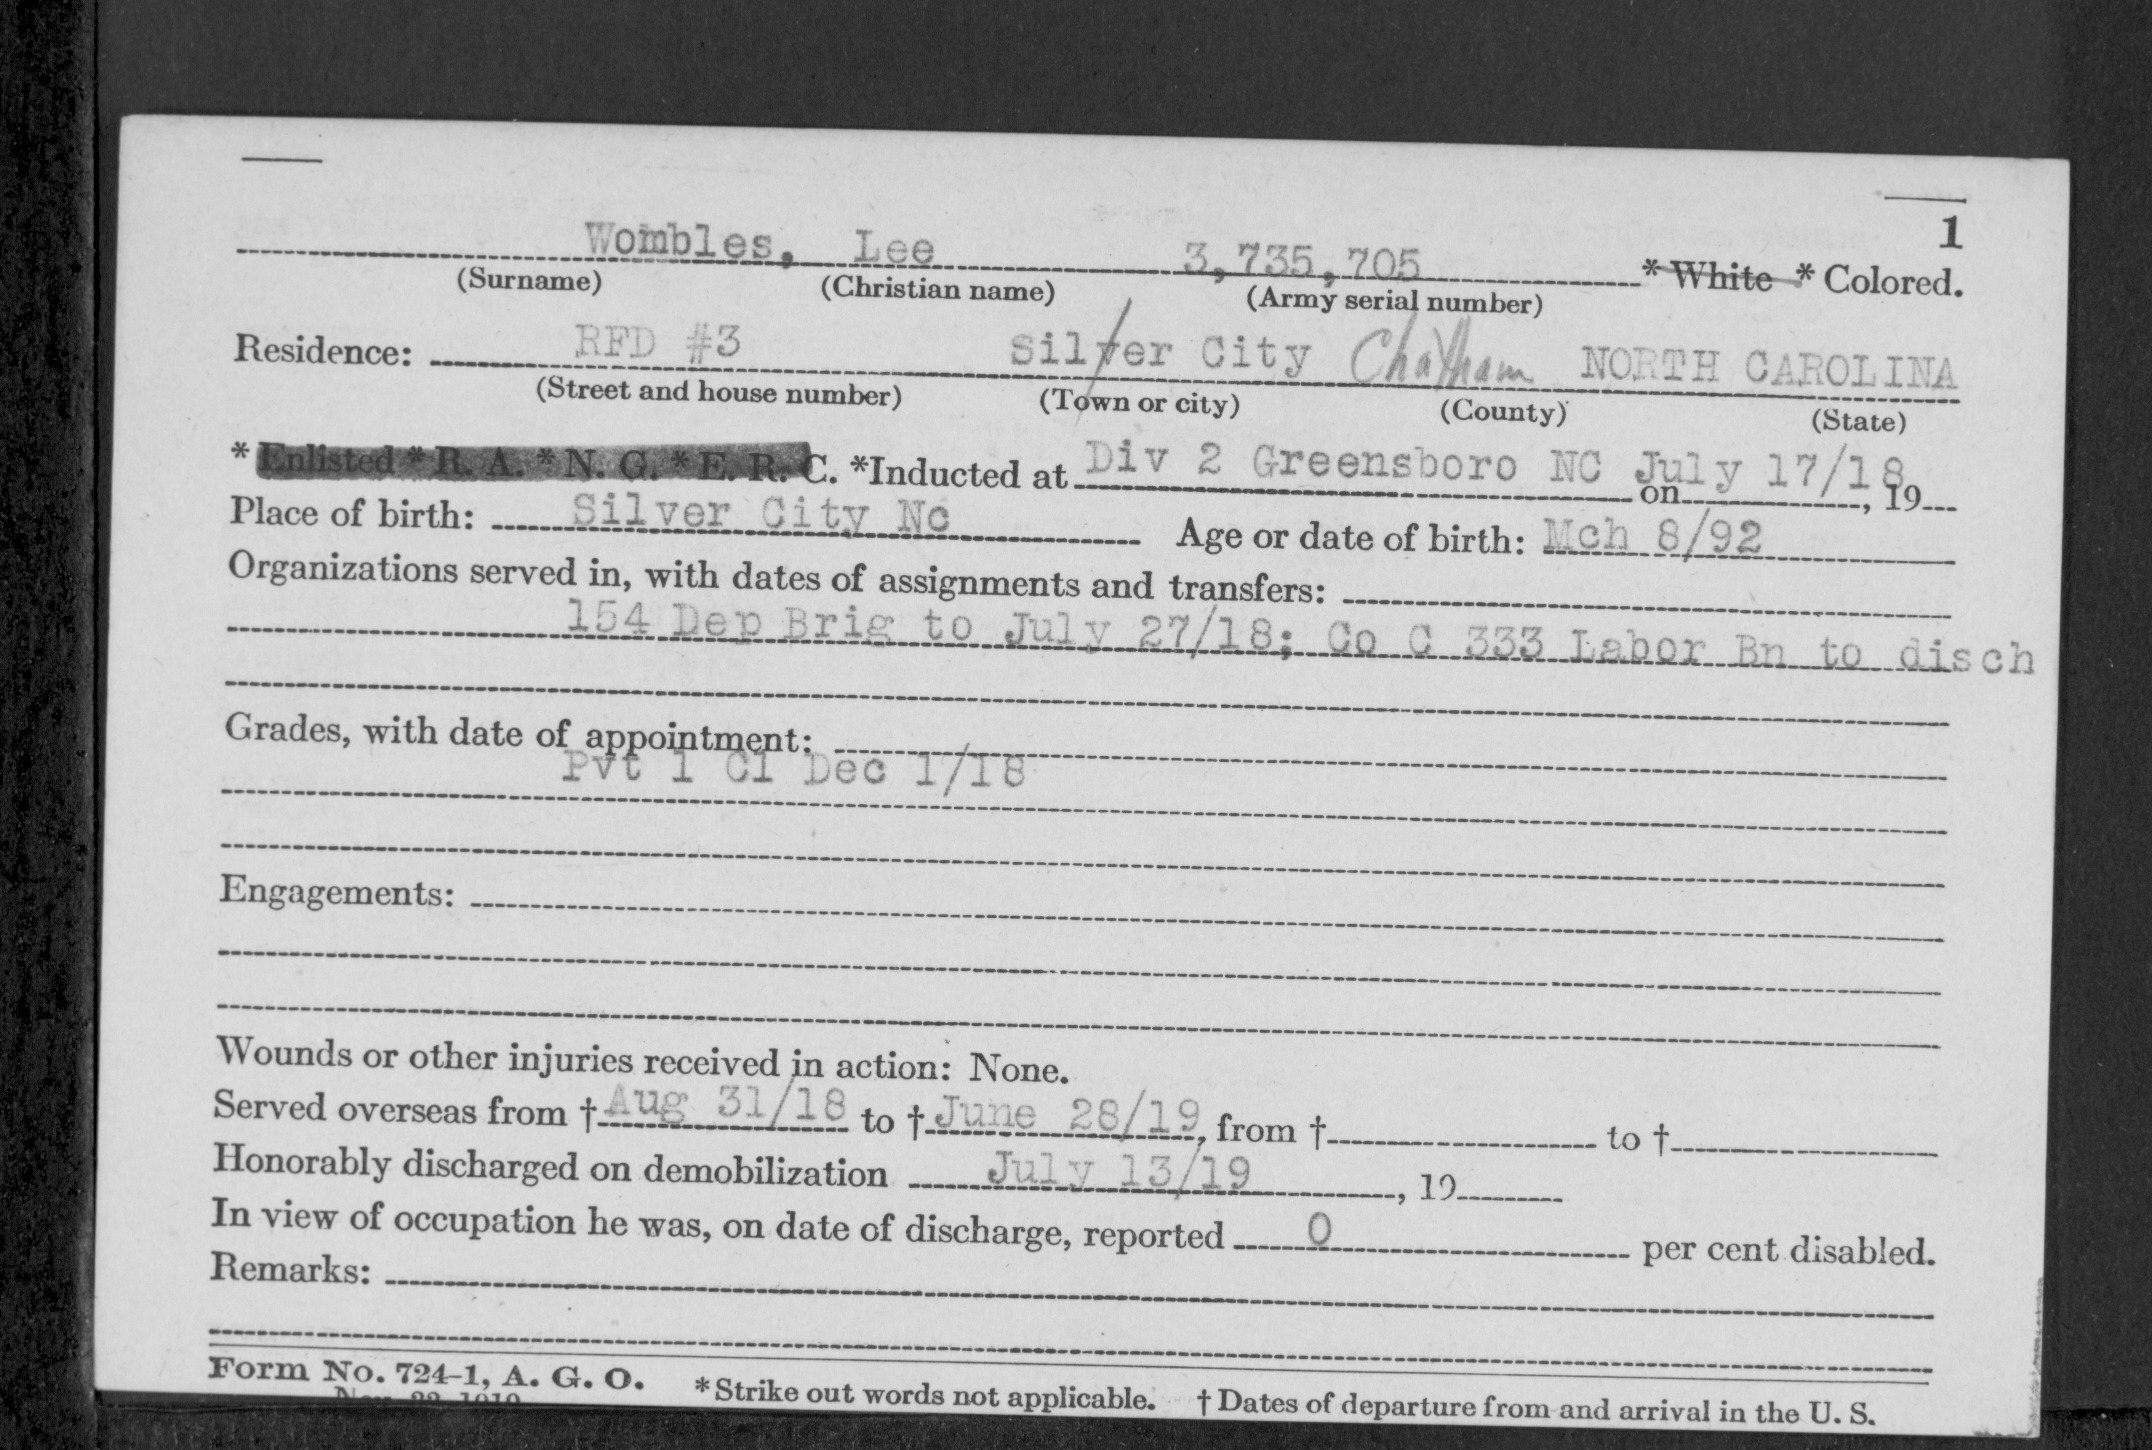 1
Wombles, Lee 3,735,705 * White * Colored.
(Surname) (Christian name) (Army serial number)
Residence: RFD #3 Silver City Chatham NORTH CAROLINA
(Street and house number) (Town or city) (County) (State)
* Enlisted * R. A. * N. G. * E. R. C. *Inducted at Div 2 Greensboro NC on July 17/18, 19
Place of birth: Silver City Nc Age or date of birth: Mch 8/92
Organizations served in, with dates of assignments and transfers:
154 Dep Brig to July 27/18; Co C 333 Labor Bn to disch
Grades, with date of appointment:
Pvt 1 Cl Dec 1/18
Engagements:
Wounds or other injuries received in action: None.
Served overseas from † Aug 31/18 to † June 28/19, from † to †
Honorably discharged on demobilization July 13/19, 19
In view of occupation he was, on date of discharge, reported 0 per cent disabled.
Remarks:
Form No. 724-1, A. G. O. * Strike out words not applicable. † Dates of departure from and arrival in the U. S.
Nov. 22, 1919